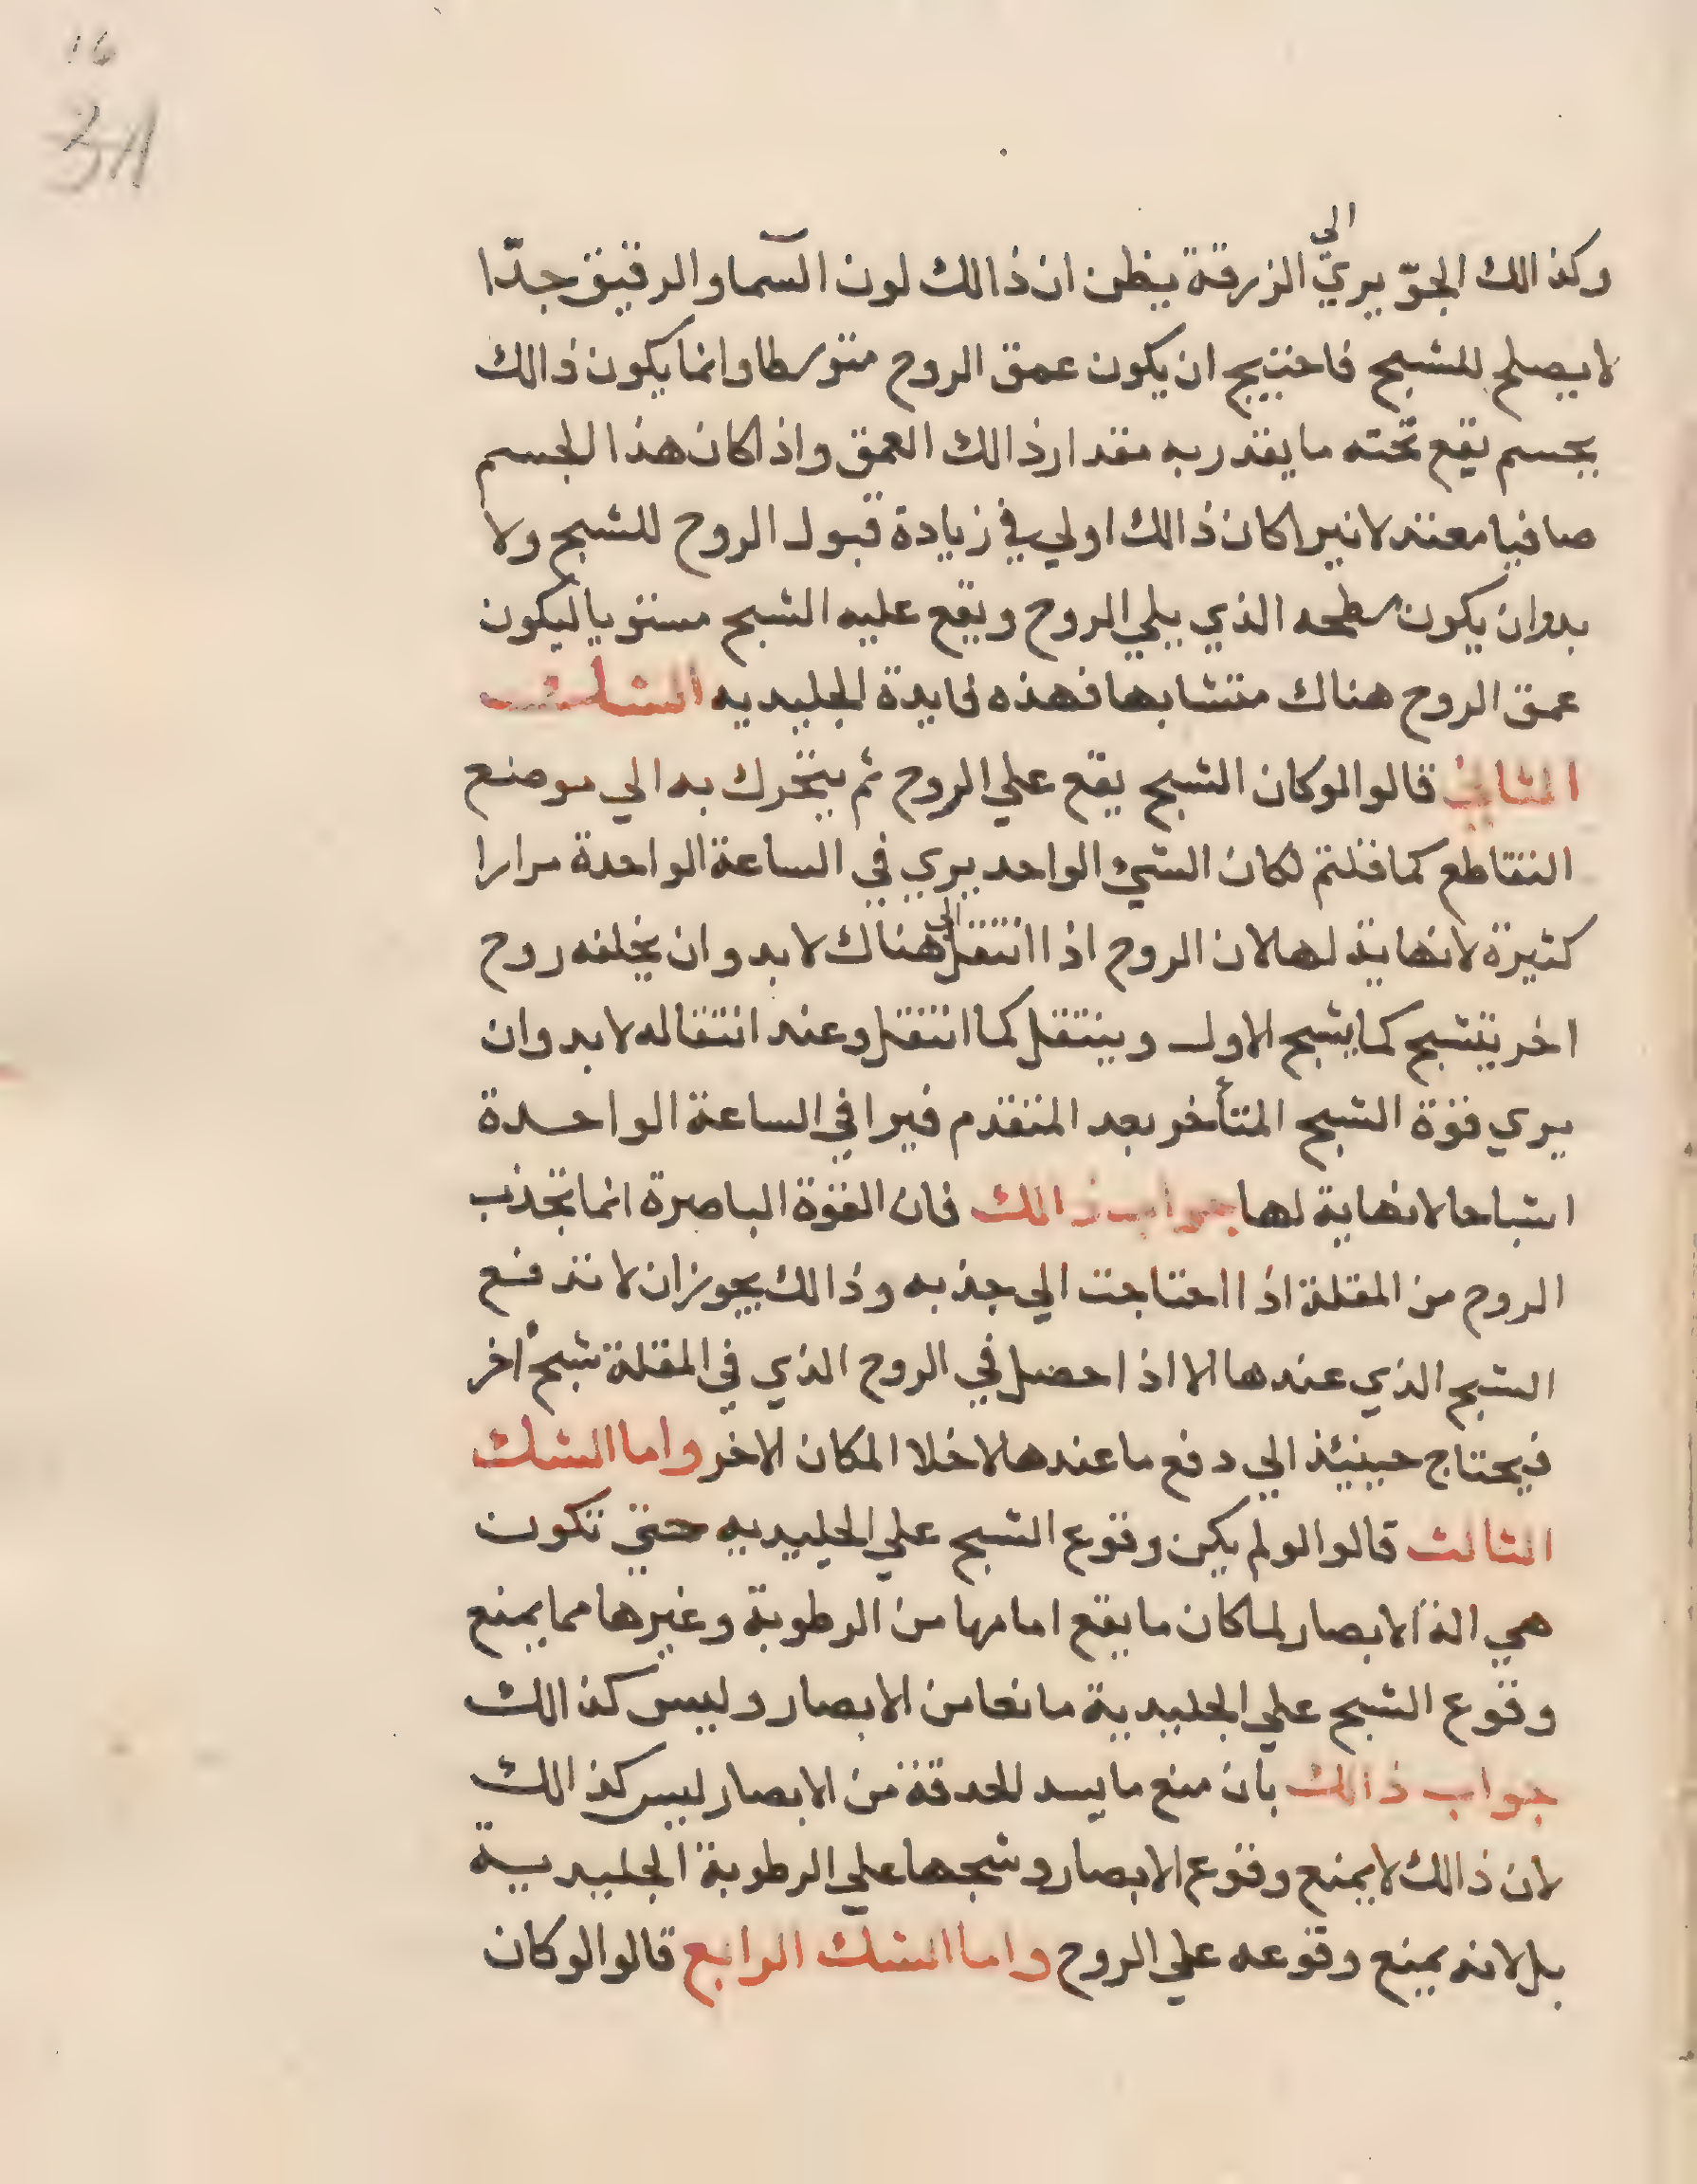 16
3A
الي
وكذالك الجوّ يريّ الزرقة يظن ان ذالك لون السّما والرقيق جدّا
لا يصلح للشبح فاحتيج ان يكون عمق الروح متوسطا وانما يكون ذالك
بجسم يقع تحته ما يقدر به مقدار ذالك العمق واذا كان هذا الجسم
صافيا معتدلا نيرا كان ذالك اولي في زيادة قبول الروح للشبح ولا
بد وان يكون سطحه الذي يلي الروح ويقع عليه الشبح مستويا ليكون
عمق الروح هناك متشابها فهذه فايدة الجليديه الشك
الثاني قالوا لو كان الشبح يقع علي الروح ثم يتحرك به الي موضع
التقاطع كما قلتم لكان الشيء الواحد يري في الساعة الواحدة مرارا
كثيرة لا نهاية لها لان الروح اذا انتقل الي هناك لا بد وان يخلفه روح
اخر يتشبح كما يشبح الاول وينتقل كما انتقل وعند انتقاله لا بد وان
يري قوة الشبح المتأخر بعد المتقدم فيرا في الساعة الواحدة
اشباحا لا نهاية لها جواب ذالك فان القوة الباصرة انما تجذب
الروح من المقلة اذا احتاجت الي جذبه وذالك يجوز ان لا تدفع
الشبح الذي عندها الا اذا حصل في الروح الذي في المقلة شبح أخر
فيحتاج حينئذ الي دفع ما عندها لاخلا المكان الاخر واما الشك
الثالث قالوا لو لم يكن وقوع الشبح علي الجليديه حتي تكون
هي الة الابصار لما كان ما يقع امامها من الرطوبة وغيرها مما يمنع
وقوع الشبح علي الجليدية مانعا من الابصار وليس كذالك
جواب ذالك بان منع ما يسد للحدقة من الابصار ليس كذالك
لان ذالك لا يمنع وقوع الابصار وشبحها علي الرطوبة الجليدية
بل لانه يمنع وقوعه علي الروح واما الشك الرابع قالوا لو كان